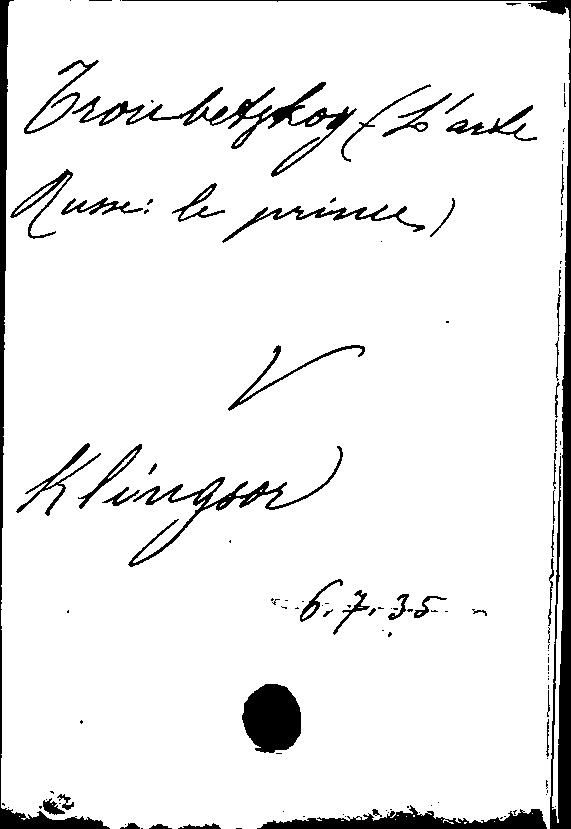 Troubetzkoy (L'arte
Russe: le prince)
V
Klingsor
6.7.35